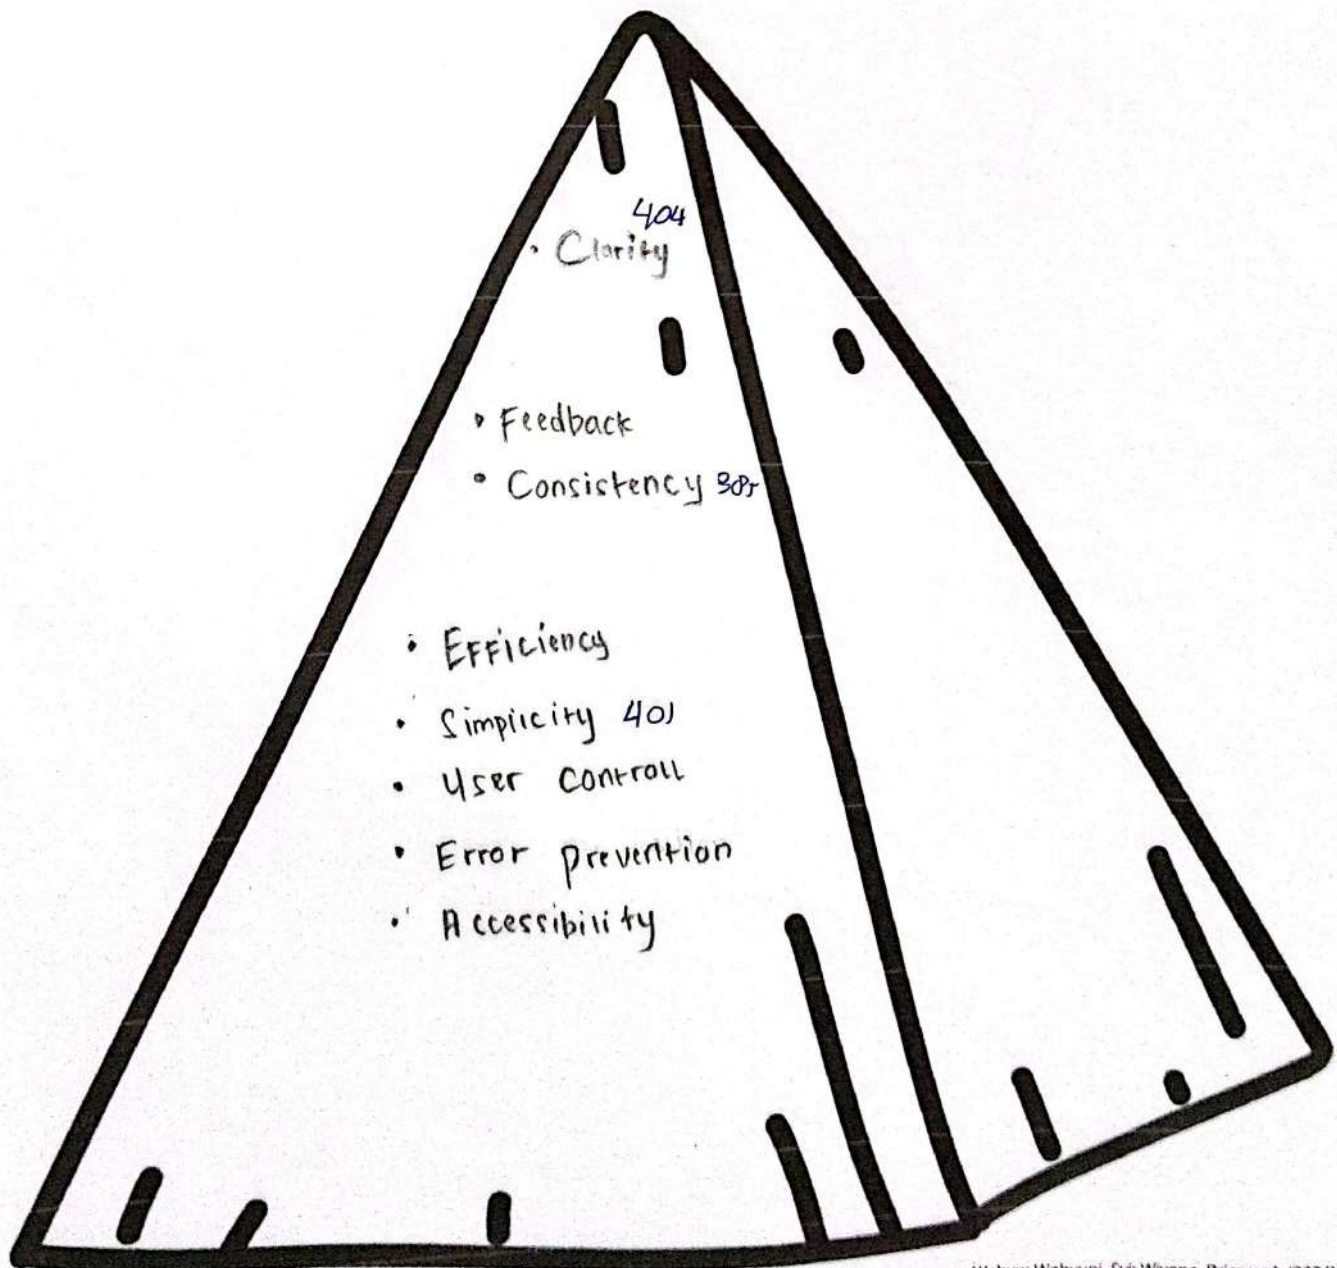 404
· Clarity
· Feedback
· Consistency 385
· Efficiency
· Simplicity 401
· User controll
· Error prevention
· Accessibility